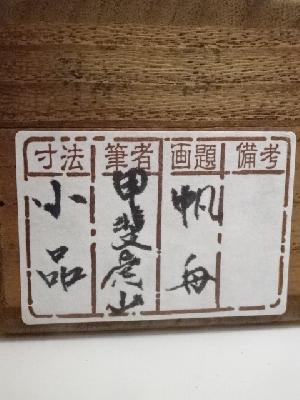 寸法 筆者 画題 備考
小品
甲斐虎山
帆舟